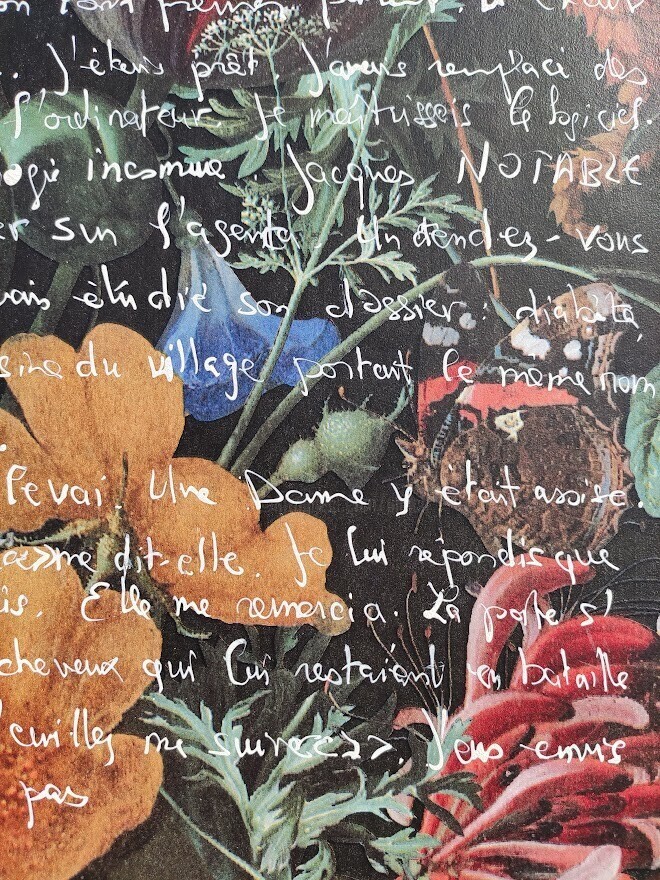 mon tout premier patient. La
. J'étais prêt J'avais remplacé des
l'ordinateur. Je maîtrisais le logiciel.
ogie inconnue. Jacques NOTABLE
er sur l'agenda. Un rendez-vous
vais étudié son dossier : diabète,
sine du village portant le même nom
levai. Une Dame y était assise.
>> me dit-elle. Je lui répondis que
is. Elle me remercia. La porte s'
cheveux qui lui restaient en bataille
Veuillez me suivre >>. J'eus envie
pas